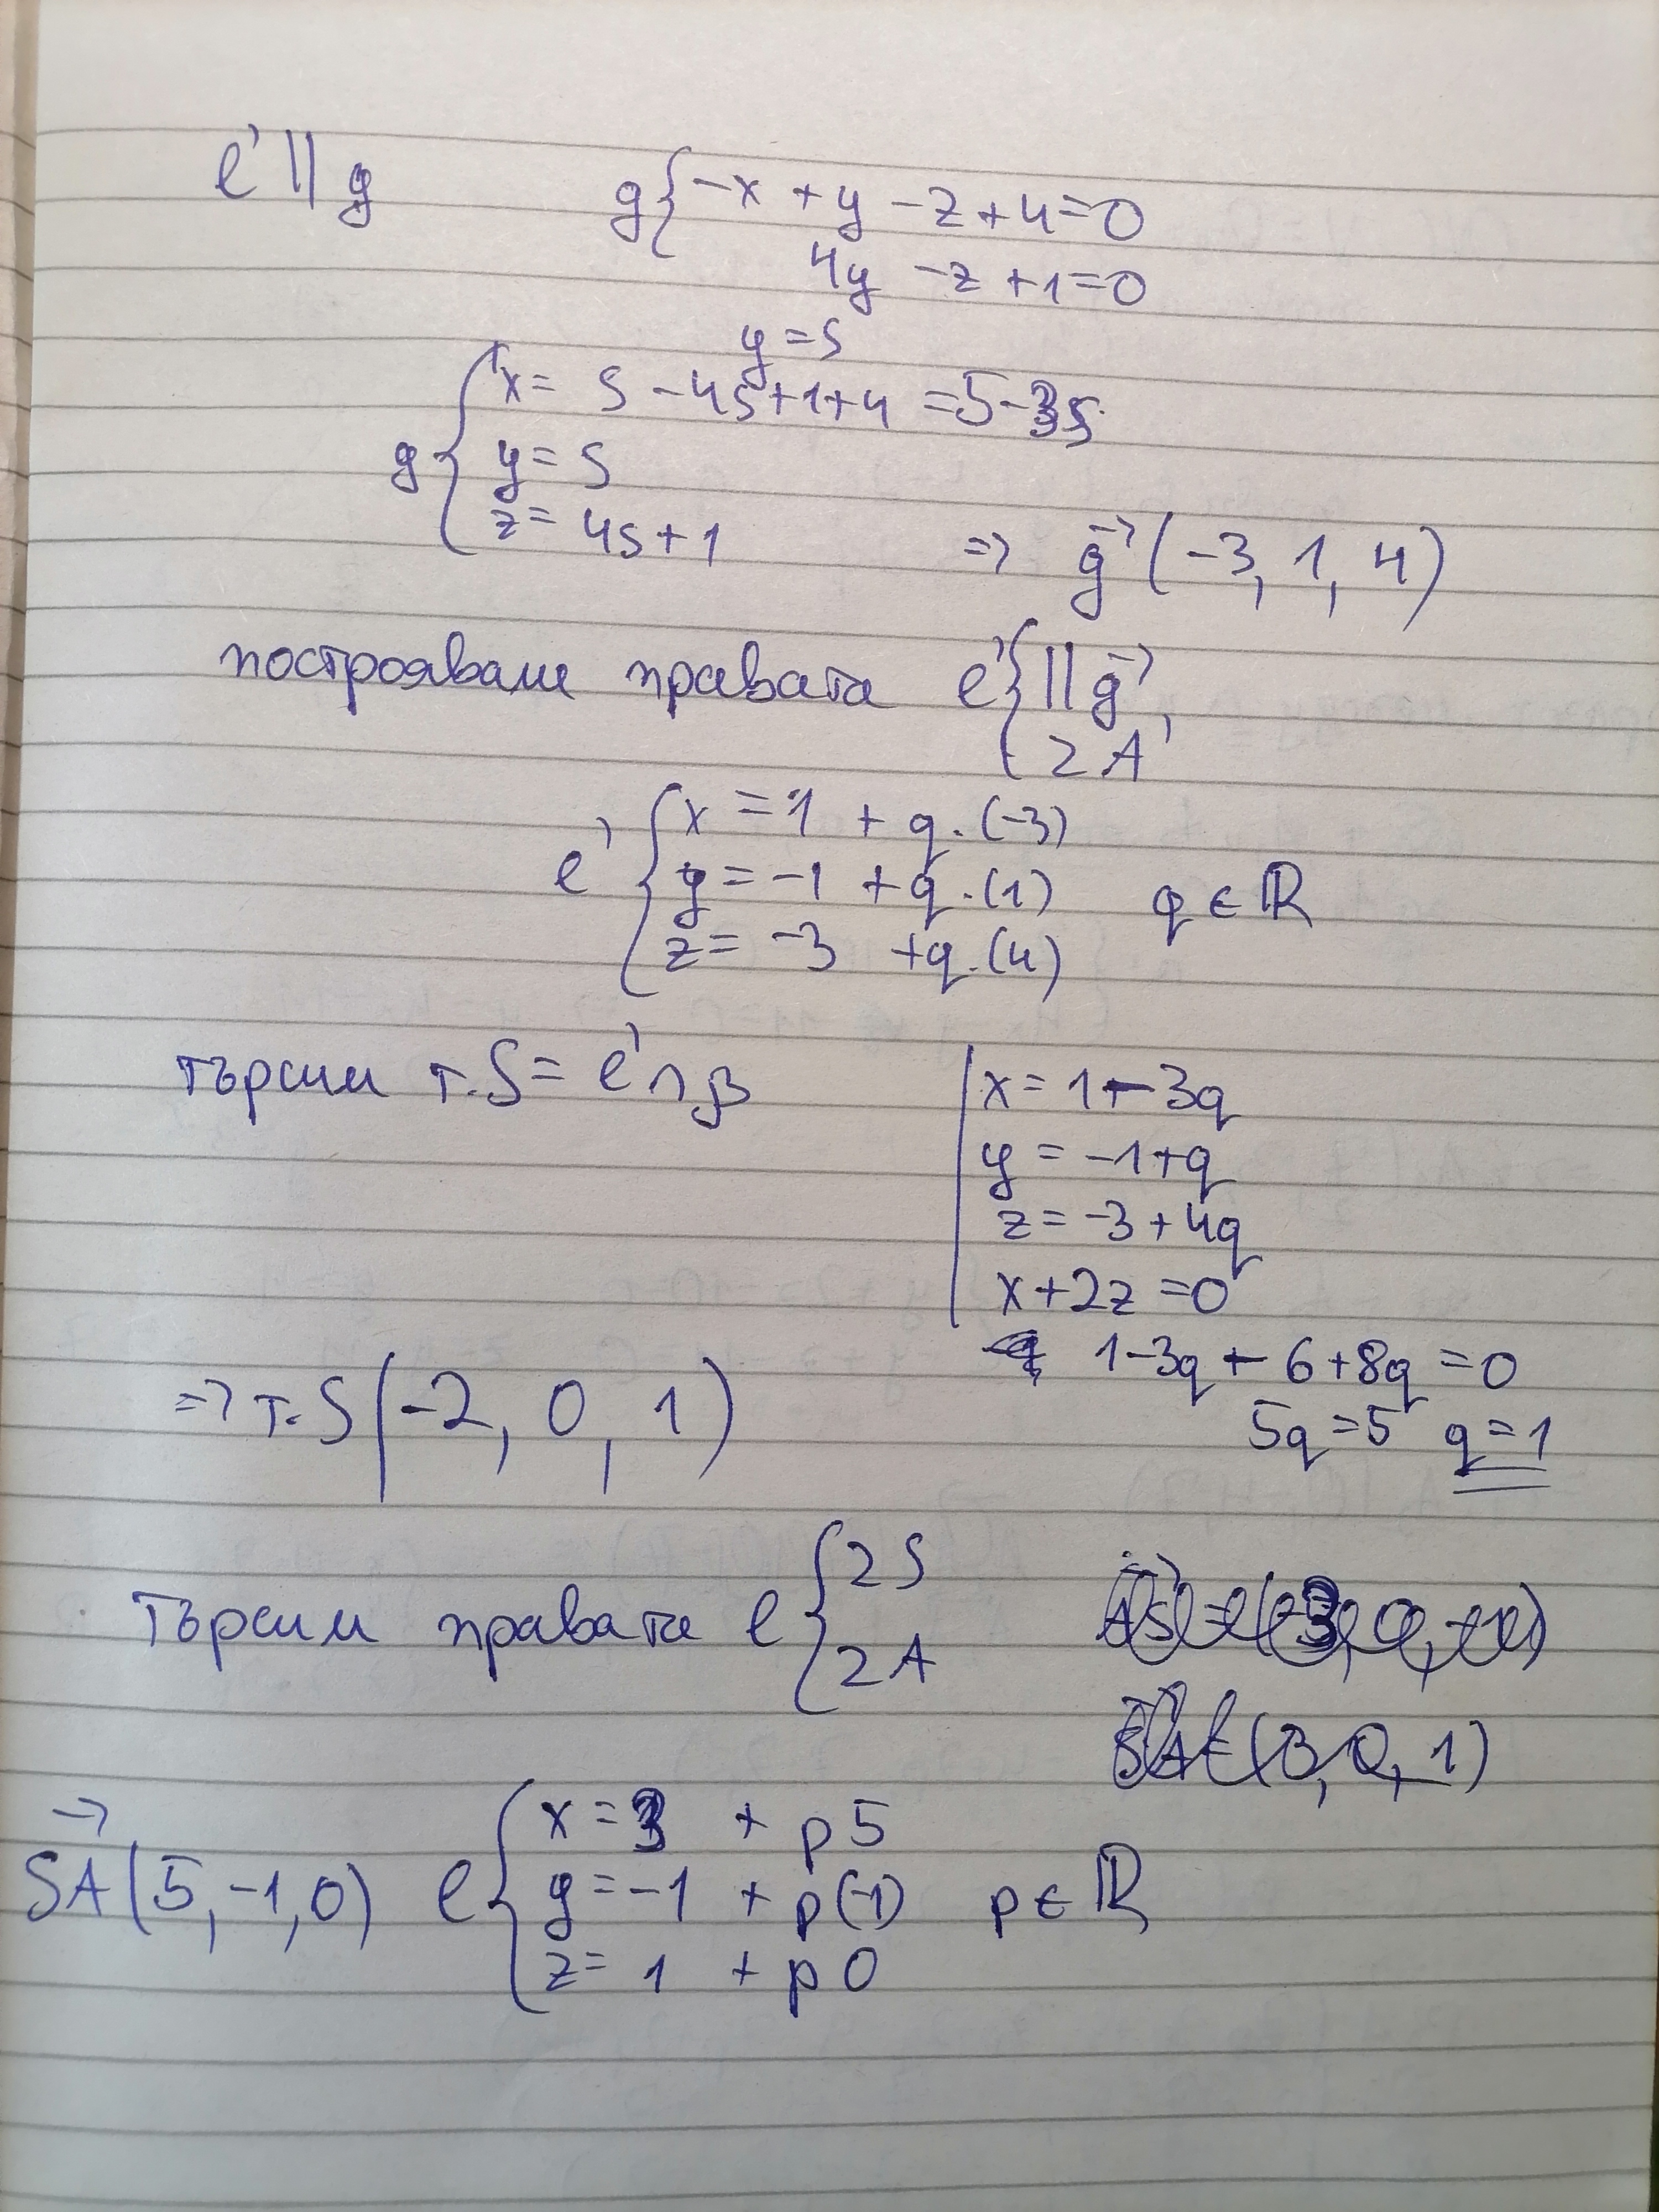 e' || g g { -x + y - z + 4 = 0
4y - z + 1 = 0
y = s
x = s - 4s + 1 + 4 = 5 - 3s
g { y = s
z = 4s + 1 => g→ (-3, 1, 4)
построяваме правата e' { || g→
z A'
x = 1 + q. (-3)
e' { y = -1 + q. (1) q ∈ ℝ
z = -3 + q. (4)
търсим т. S = e' ∩ β x = 1 - 3q
y = -1 + q
z = -3 + 4q
x + 2z = 0
1 - 3q - 6 + 8q = 0
=> т. S (-2, 0, 1) 5q = 5 q = 1
Търсим правата e { z S
z A
x = 3 + p 5
SA→ (5, -1, 0) e { y = -1 + p (-1) p ∈ ℝ
z = 1 + p 0